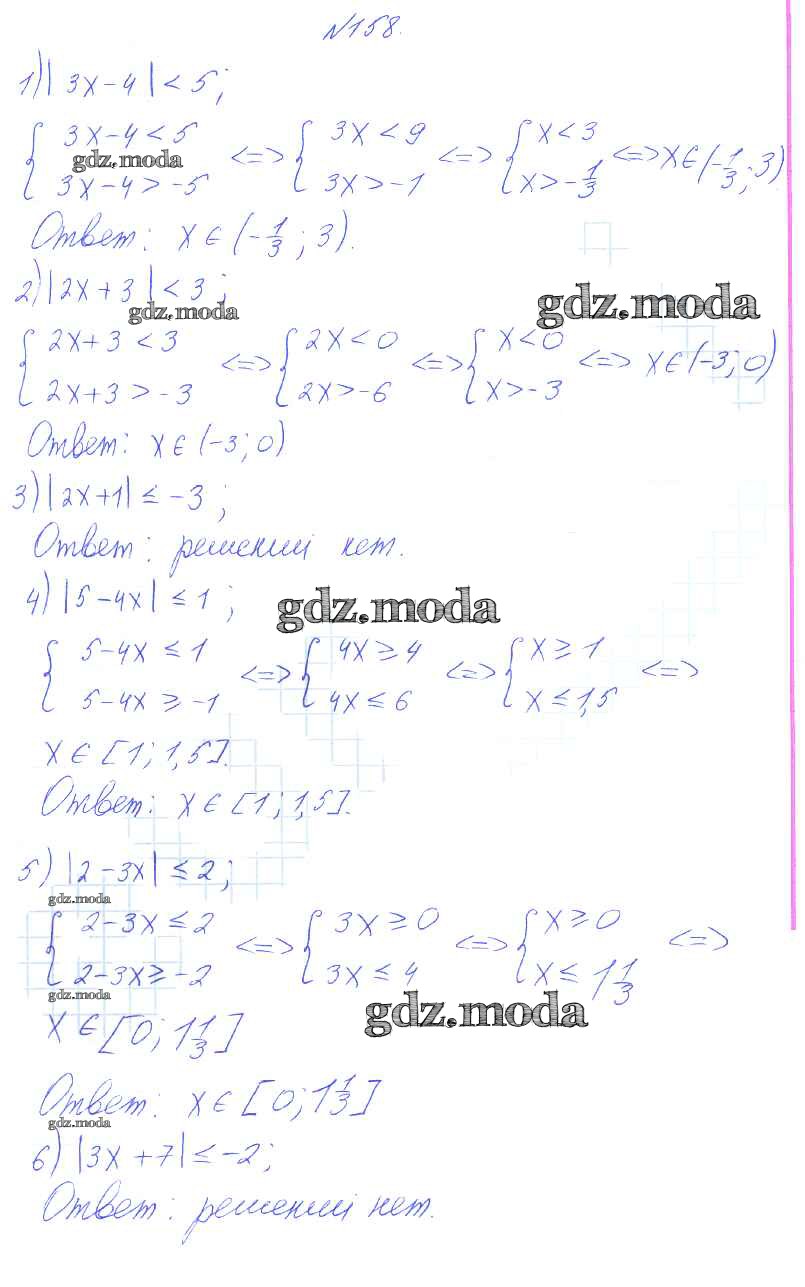 №158.
1) |3x-4| < 5;
{ 3x-4<5 <=> { 3x<9 <=> { x<3 <=> x∈(-1/3; 3)
gdz.moda
3x-4>-5 3x>-1 x>-1/3
Ответ: x∈(-1/3; 3).
2) |2x+3| < 3;
gdz.moda
gdz.moda
{ 2x+3<3 <=> { 2x<0 <=> { x<0 <=> x∈(-3; 0)
2x+3>-3 2x>-6 x>-3
Ответ: x∈(-3; 0)
3) |2x+1| ≤ -3;
Ответ: решений нет.
4) |5-4x| ≤ 1;
gdz.moda
{ 5-4x ≤ 1 <=> { 4x ≥ 4 <=> { x ≥ 1 <=>
5-4x ≥ -1 4x ≤ 6 x ≤ 1,5
x∈[1; 1,5].
Ответ: x∈[1; 1,5].
5) |2-3x| ≤ 2;
gdz.moda
{ 2-3x ≤ 2 <=> { 3x ≥ 0 <=> { x ≥ 0 <=>
2-3x ≥ -2 3x ≤ 4 x ≤ 1 1/3
gdz.moda
gdz.moda
x∈[0; 1 1/3]
Ответ: x∈[0; 1 1/3]
gdz.moda
6) |3x+7| ≤ -2;
Ответ: решений нет.